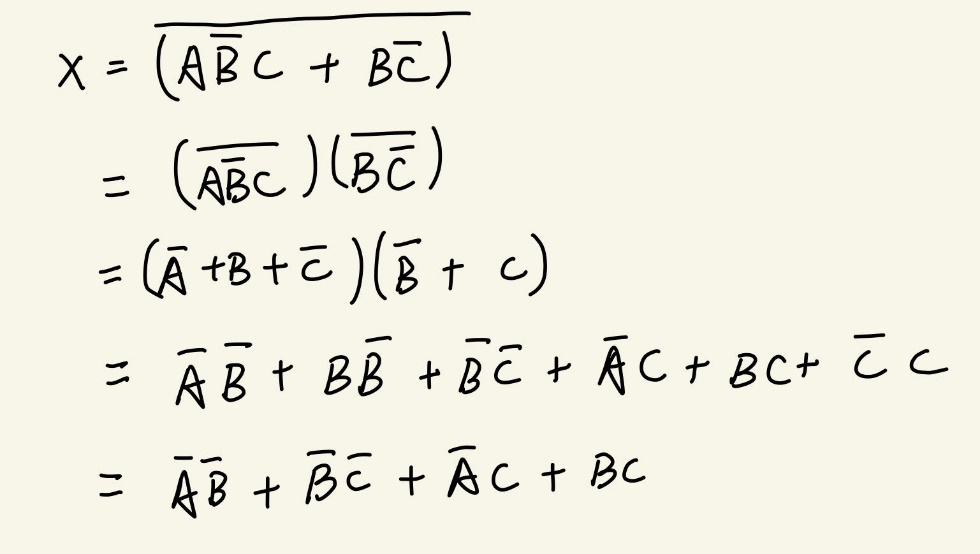 X = \overline{(A\overline{B}C + B\overline{C})}
= (\overline{A\overline{B}C})(\overline{B\overline{C}})
= (\overline{A} + B + \overline{C})(\overline{B} + C)
= \overline{A}\,\overline{B} + B\overline{B} + \overline{B}\,\overline{C} + \overline{A}C + BC + \overline{C}C
= \overline{A}\,\overline{B} + \overline{B}\,\overline{C} + \overline{A}C + BC